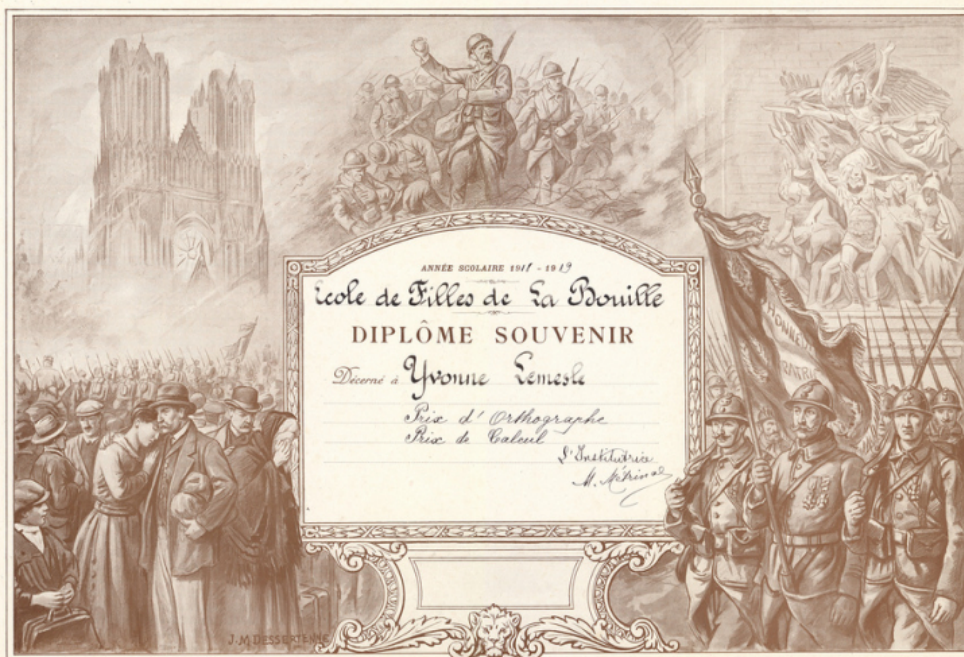 ANNÉE SCOLAIRE 1918 - 1919
Ecole de Filles de La Bouille
DIPLÔME SOUVENIR
Décerné à Yvonne Lemesle
Prix d'Orthographe
Prix de Calcul
L'Institutrice
M.
HONNEUR
PATRIE
J. M DESSERTENNE